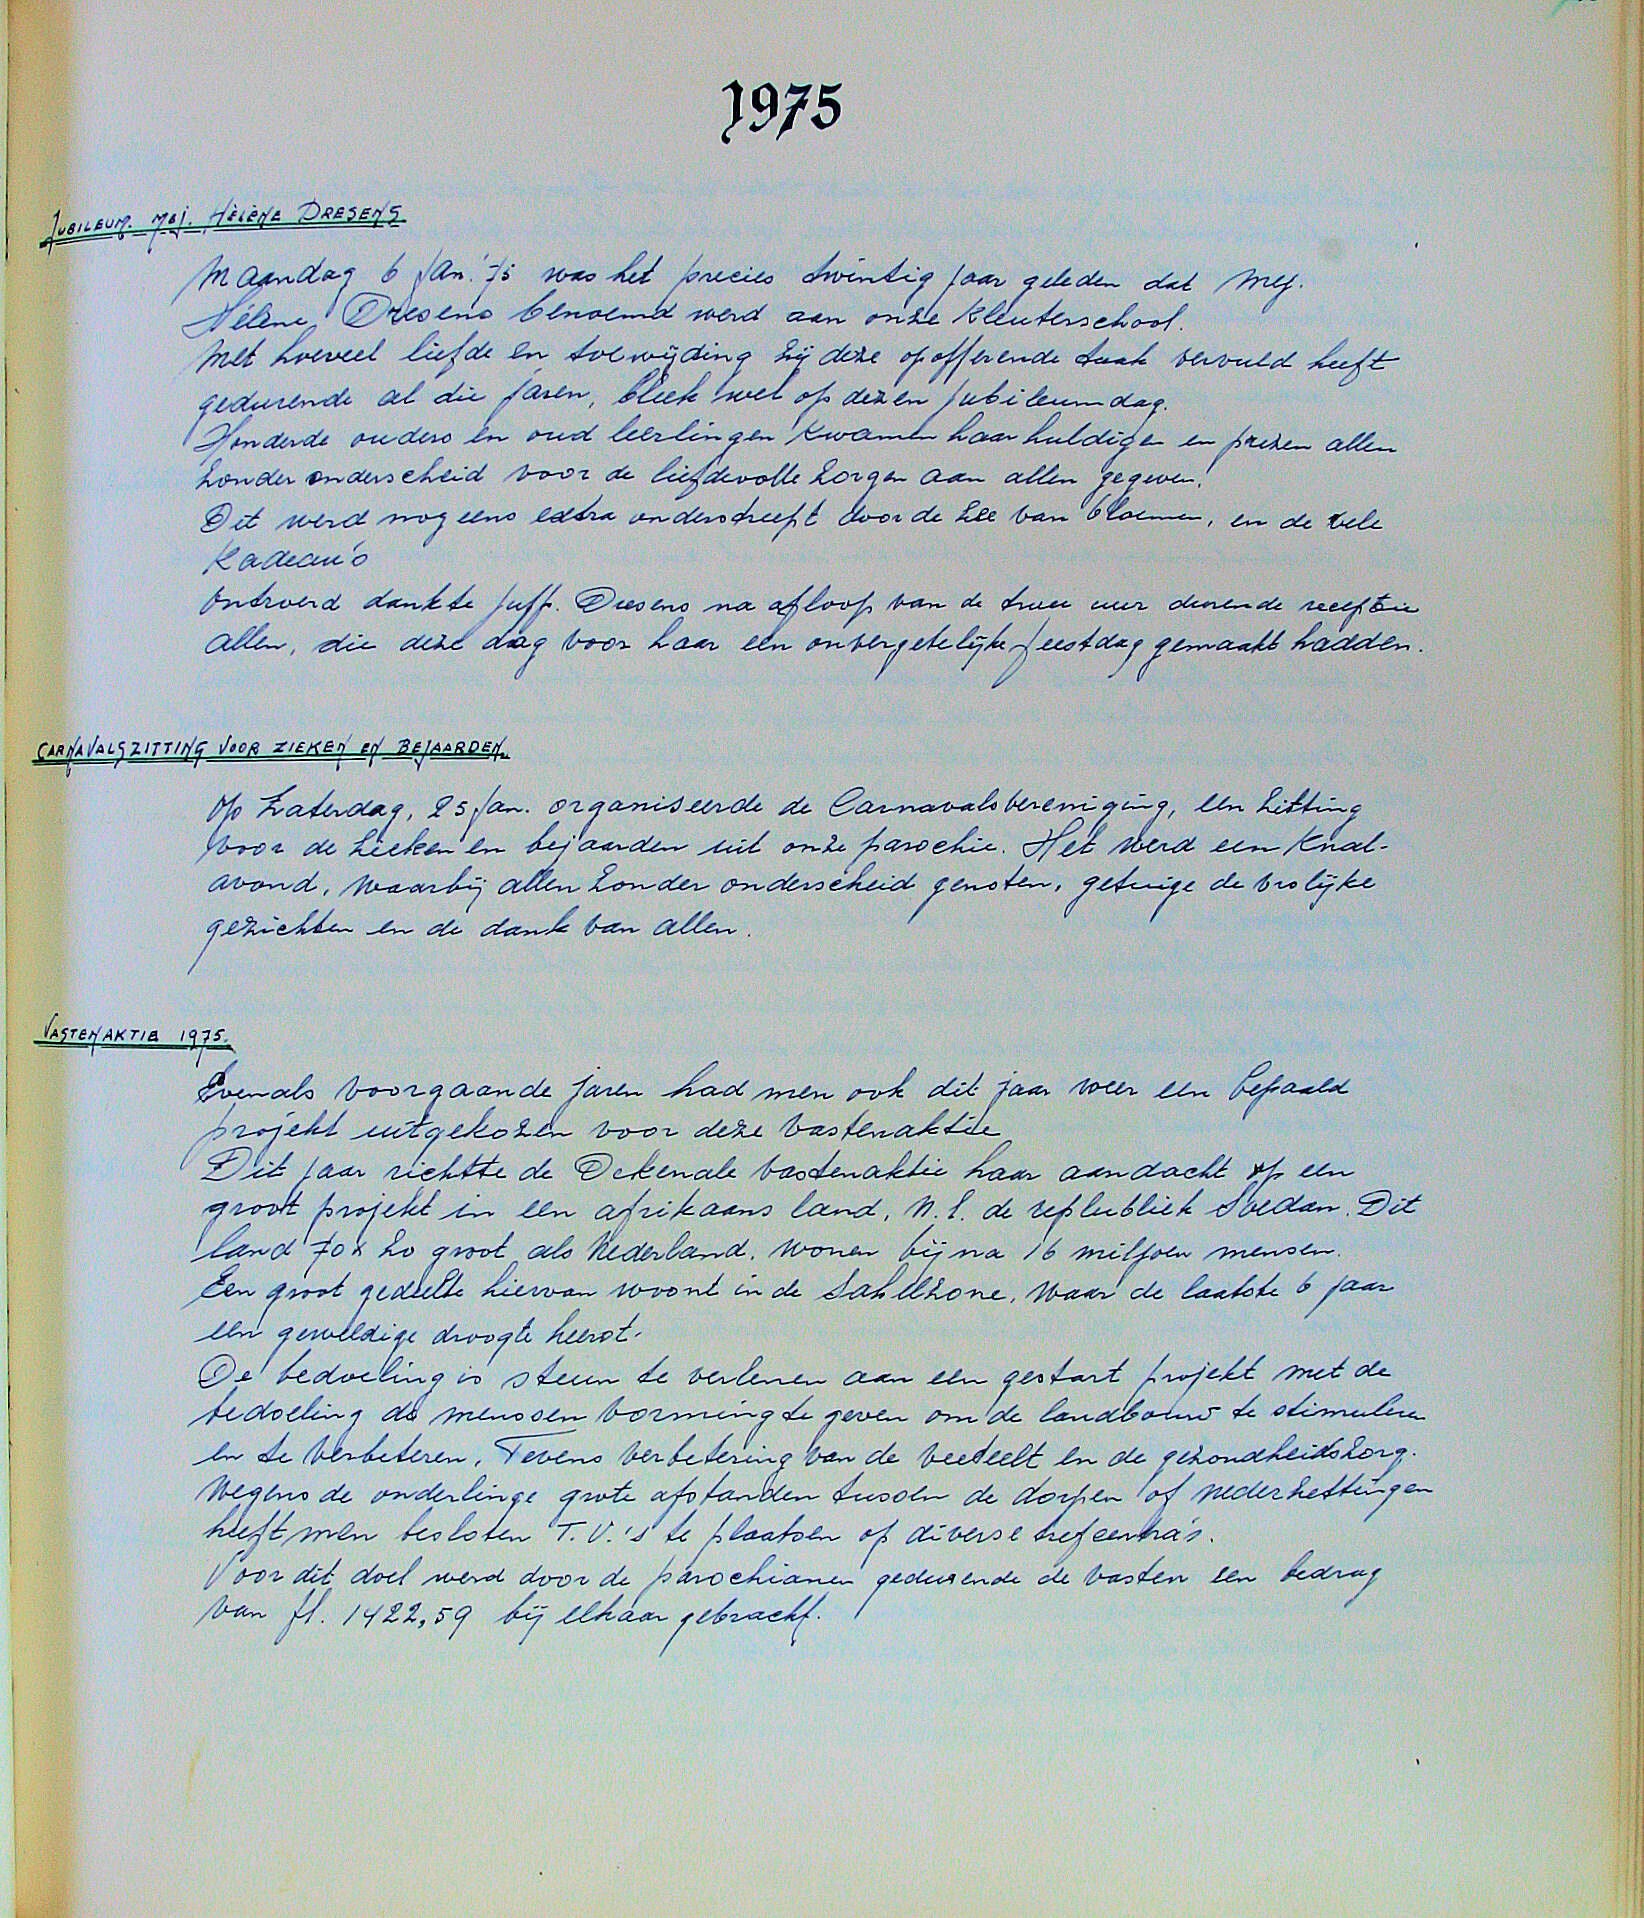 1975
Jubileum. Mej. Hélène Dresens
Maandag 6 jan. '75 was het precies twintig jaar geleden dat Mej.
Hélène Dresens benoemd werd aan onze kleuterschool.
Met hoeveel liefde en toewijding zij deze opofferende taak vervuld heeft
gedurende al die jaren, bleek wel op dezen jubileumdag.
Honderde ouders en oud leerlingen kwamen haar huldigen en prezen allen
zonder onderscheid voor de liefdevolle zorgen aan allen gegeven.
Dit werd nog eens extra onderstreept door de zee van bloemen, en de vele
kadeau's
Ontroerd dankte juff. Dresens na afloop van de twee uur durende receptie
allen, die deze dag voor haar een onvergetelijke feestdag gemaakt hadden.
Carnavalszitting voor zieken en bejaarden.
Op Zaterdag, 25 jan. organiseerde de Carnavalsvereniging, een zitting
voor de zieken en bejaarden uit onze parochie. Het werd een knal-
avond, waarbij allen zonder onderscheid genoten, getuige de vrolijke
gezichten en de dank van allen.
Vastenaktie 1975.
Evenals voorgaande jaren had men ook dit jaar weer een bepaald
projekt uitgekozen voor deze vastenaktie
Dit jaar richtte de Dekenale vastenaktie haar aandacht op een
groot projekt in een afrikaans land, n.l. de repleubliek Soedan. Dit
land 70 x zo groot als Nederland. wonen bijna 16 miljoen mensen.
Een groot gedeelte hiervan woont in de Sahelzone, waar de laatste 6 jaar
een geweldige droogte heerst.
De bedoeling is steun te verlenen aan een gestart projekt met de
bedoeling de menssen vorming te geven om de landbouw te stimuleren
en te verbeteren, Tevens verbetering van de veeteelt en de gezondheidszorg.
Wegens de onderlinge grote afstanden tussen de dorpen of nederzettingen
heeft men besloten T.V.'s te plaatsen op diverse trefcentra's.
Voor dit doel werd door de parochianen gedurende de vasten een bedrag
van fl. 1422,59 bij elkaar gebracht.